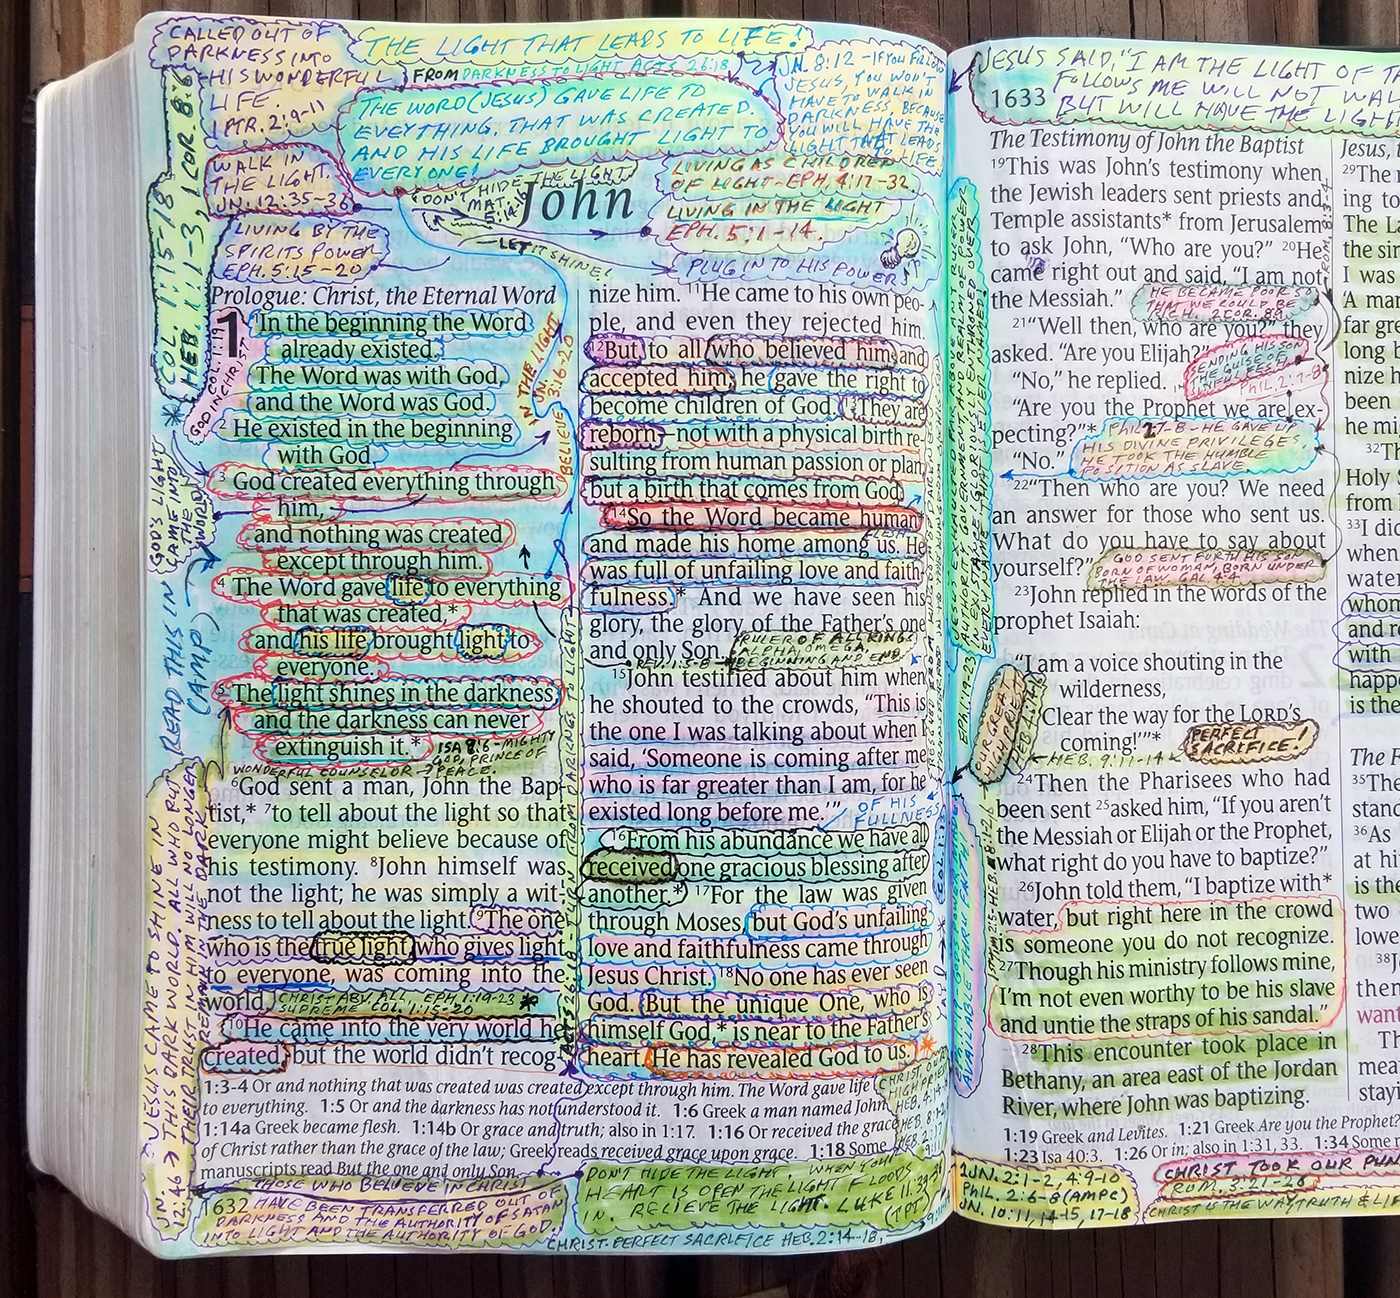 CALLED OUT OF
DARKNESS INTO
HIS WONDERFUL
LIFE.
1 PTR. 2:9-11
THE LIGHT THAT LEADS TO LIFE!
FROM DARKNESS TO LIGHT ACTS 26:18
THE WORD (JESUS) GAVE LIFE TO
EVEYTHING, THAT WAS CREATED.
AND HIS LIFE BROUGHT LIGHT TO
EVERYONE!
JN. 8:12 - IF YOU FOLLOW
JESUS, YOU WON'T
HAVE TO WALK IN
DARKNESS, BECAUSE
YOU WILL HAVE THE
LIGHT THAT LEADS
TO LIFE.
WALK IN
THE LIGHT.
JN. 12:35-36
DON'T HIDE THE LIGHT
MAT.
5:14-16
LET IT SHINE!
LIVING AS CHILDREN
OF LIGHT - EPH. 4:17-32
LIVING IN THE LIGHT
EPH. 5:1-14.
PLUG INTO HIS POWER!
LIVING BY THE
SPIRITS POWER
EPH. 5:15-20
COL. 1:15-18
HEB 1:1-3, 1 COR. 8:6
GOD IN CHRIST
COL. 1:19
GOD'S LIGHT
CAME INTO
THE
WORLD
READ THIS IN
(AMP)
BELIEVE IN THE LIGHT
JN. 3:16-20
John
Prologue: Christ, the Eternal Word
1 In the beginning the Word
already existed.
The Word was with God,
and the Word was God.
2 He existed in the beginning
with God.
3 God created everything through
him,
and nothing was created
except through him.
4 The Word gave life to everything
that was created,*
and his life brought light to
everyone.
5 The light shines in the darkness,
and the darkness can never
extinguish it.*
ISA 9:6 - MIGHTY
GOD, PRINCE OF
WONDERFUL COUNSELOR → PEACE.
God sent a man, John the Bap-
tist,* 7to tell about the light so that
everyone might believe because of
his testimony. 8John himself was
not the light; he was simply a wit-
ness to tell about the light. 9The one
who is the true light, who gives light
to everyone, was coming into the
world.
CHRIST ABV. ALL. EPH. 1:19-23
SUPREME COL. 1:15-20
10He came into the very world he
created, but the world didn't recog-
nize him. 11He came to his own peo-
ple, and even they rejected him.
12But to all who believed him and
accepted him, he gave the right to
become children of God. 13They are
reborn—not with a physical birth re-
sulting from human passion or plan,
but a birth that comes from God.
14So the Word became human
FLESH
and made his home among us. He
was full of unfailing love and faith-
fulness.* And we have seen his
glory, the glory of the Father's one
and only Son.
RULER OF ALL KINGS
ALPHA, OMEGA,
REV. 1:5-8 - BEGINNING AND END.
15John testified about him when
he shouted to the crowds, "This is
the one I was talking about when I
said, 'Someone is coming after me
who is far greater than I am, for he
existed long before me.'"
OF HIS
FULLNESS
16From his abundance we have all
received one gracious blessing after
another.* 17For the law was given
through Moses, but God's unfailing
love and faithfulness came through
Jesus Christ. 18No one has ever seen
God. But the unique One, who is
himself God,* is near to the Father's
heart. He has revealed God to us.
ACTS 26:18 - TURN FROM DARKNESS TO LIGHT
1:3-4 Or and nothing that was created was created except through him. The Word gave life
to everything. 1:5 Or and the darkness has not understood it. 1:6 Greek a man named John.
1:14a Greek became flesh. 1:14b Or grace and truth; also in 1:17. 1:16 Or received the grace
of Christ rather than the grace of the law; Greek reads received grace upon grace. 1:18 Some
manuscripts read But the one and only Son.
JESUS CAME TO SHINE IN
THIS DARK WORLD. ALL WHO PUT
THEIR TRUST IN HIM WILL NO LONGER
REMAIN IN THE DARK
JN.
12:46
1632
THOSE WHO BELIEVE IN CHRIST
HAVE BEEN TRANSFERRED OUT OF
DARKNESS AND THE AUTHORITY OF SATAN
INTO LIGHT AND THE AUTHORITY OF GOD!
DON'T HIDE THE LIGHT, WHEN YOUR
HEART IS OPEN THE LIGHT FLOODS
IN. RELIEVE THE LIGHT. LUKE 11:33-36
(TPT)
CHRIST-PERFECT SACRIFICE HEB. 2:14-18,
JESUS SAID, "I AM THE LIGHT OF T
FOLLOWS ME WILL NOT WAL
BUT WILL HAVE THE LIGH
1633
The Testimony of John the Baptist
19This was John's testimony when
the Jewish leaders sent priests and
Temple assistants* from Jerusalem
to ask John, "Who are you?" 20He
came right out and said, "I am not
the Messiah."
HE BECAME POOR SO
THAT WE COULD BE
RICH. 2 COR. 8:9
21"Well then, who are you?" they
asked. "Are you Elijah?"
"No," he replied.
PHIL. 2:7-8
"Are you the Prophet we are ex-
pecting?"*
"No."
PHIL 2:7-8 - HE GAVE UP
HIS DIVINE PRIVILEGES.
HE TOOK THE HUMBLE
POSITION AS SLAVE
22"Then who are you? We need
an answer for those who sent us.
What do you have to say about
yourself?"
GOD SENT FORTH HIS SON
BORN OF WOMAN, BORN UNDER
THE LAW. GAL. 4:4
23John replied in the words of the
prophet Isaiah:
"I am a voice shouting in the
wilderness,
'Clear the way for the LORD's
coming!'"*
PERFECT
SACRIFICE!
HEB. 9:11-14
OUR GREAT
HIGH PRIEST
24Then the Pharisees who had
been sent 25asked him, "If you aren't
the Messiah or Elijah or the Prophet,
what right do you have to baptize?"
26John told them, "I baptize with*
water, but right here in the crowd
is someone you do not recognize.
27Though his ministry follows mine,
I'm not even worthy to be his slave
and untie the straps of his sandal."
28This encounter took place in
Bethany, an area east of the Jordan
River, where John was baptizing.
1:19 Greek and Levites. 1:21 Greek Are you the Prophet
1:23 Isa 40:3. 1:26 Or in; also in 1:31, 33. 1:34 Some
1JN. 2:1-2, 4:9-10
PHIL. 2:6-8 (AMPC)
JN. 10:11, 14-15, 17-18
CHRIST TOOK OUR PUN
ROM. 3:21-28
CHRIST IS THE WAY TRUTH & LI
Jesus,
29The
ing to
The La
the si
I was
'A ma
far gr
long b
nize h
been
he mi
32Th
Holy
from
33I di
when
wate
whom
and re
with
happ
is the
The F
35The
stand
36As
at hi
is the
two
lowe
38J
them
want
Th
mea
stay